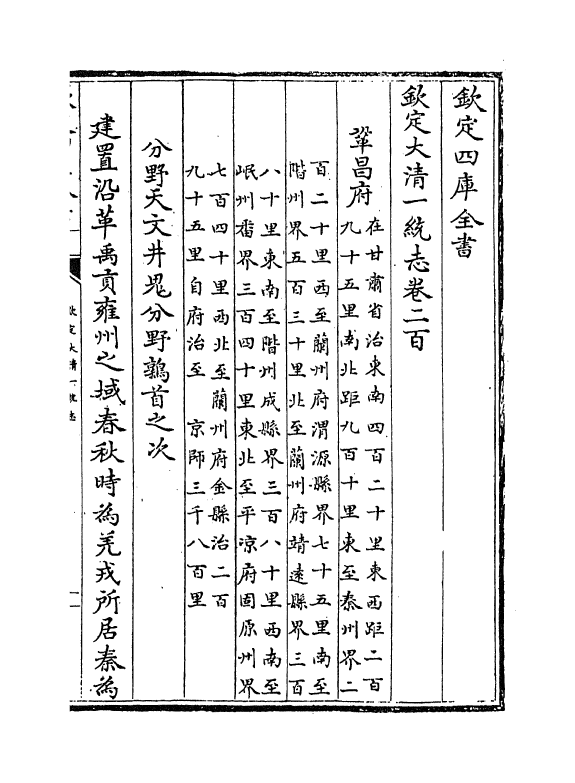 欽定四庫全書
欽定大清一統志卷二百
鞏昌府
在甘肅省治東南四百二十里東西距二百
九十五里南北距九百十里東至秦州界二
百二十里西至蘭州府渭源縣界七十五里南至
階州界五百三十里北至蘭州府靖遠縣界三百
八十里東南至階州成縣界三百八十里西南至
岷州番界三百四十里東北至平凉府固原州界
七百四十里西北至蘭州府金縣治二百
九十五里自府治至　京師三千八百里
分野天文井鬼分野鶉首之次
建置沿革禹貢雍州之域春秋時為羌戎所居秦為
欽定大清一統志